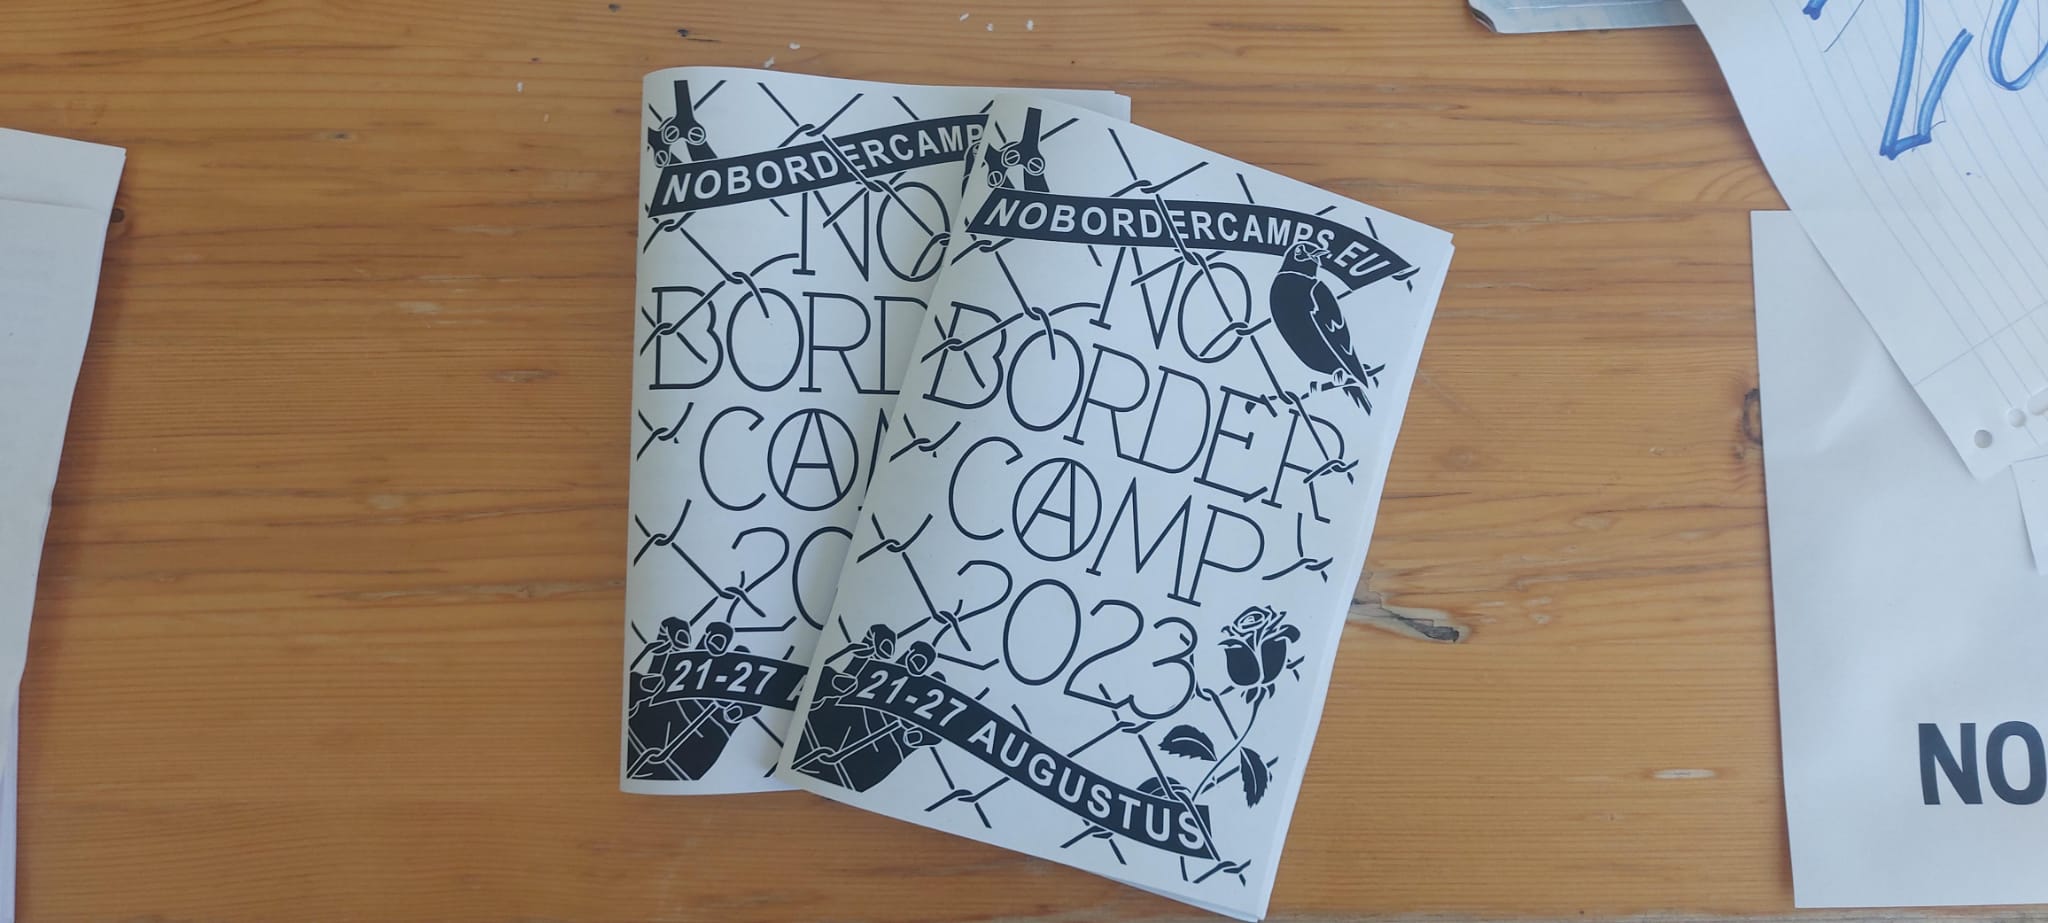 NOBORDERCAMPS
NO
BORD
CA
20
21-27 A
NOBORDERCAMPS.EU
NO
BORDER
CAMP
2023
21-27 AUGUSTUS
NO